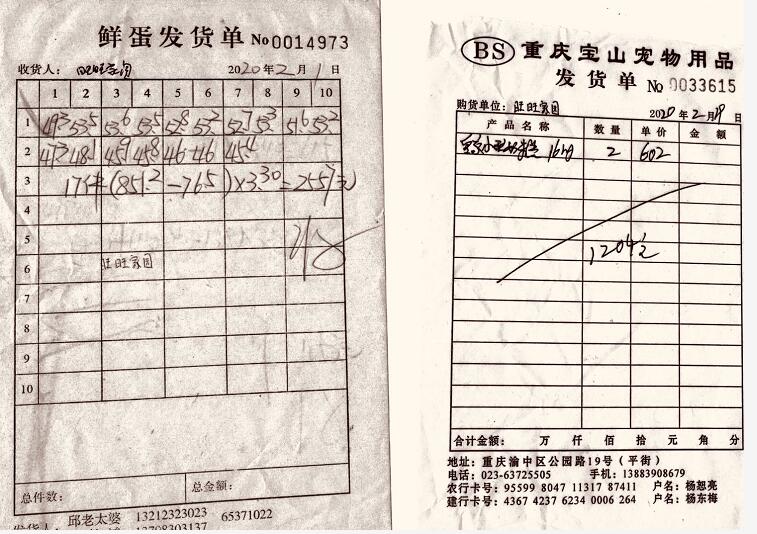 鲜蛋发货单 No 0014973
收货人： 旺旺家园 2020年2月1日
1 2 3 4 5 6 7 8 9 10
1 49.3 53.5 53.6 53.5 52.8 53.2 52.7 53.3 51.6 53.2
2 47.3 48.5 45.9 45.8 46 46 45.4
3 17件(851.2-76.5)×3.30=2557元
4
5
6 旺旺家园
7
8
9
10
总件数： 总金额：
邱老太婆 13212323023 65371022
BS 重庆宝山宠物用品
发货单 No 0033615
购货单位：旺旺家园 2020年2月19日
产品名称 数量 单价 金额
16kg 2 602
合计金额： 万 仟 佰 拾 元 角 分
地址：重庆渝中区公园路19号（平街）
电话：023-63725505 手机：13883908679
农行卡号：95599 8047 11317 87411 户名：杨恕亮
建行卡号：4367 4237 6234 0006 264 户名：杨东梅